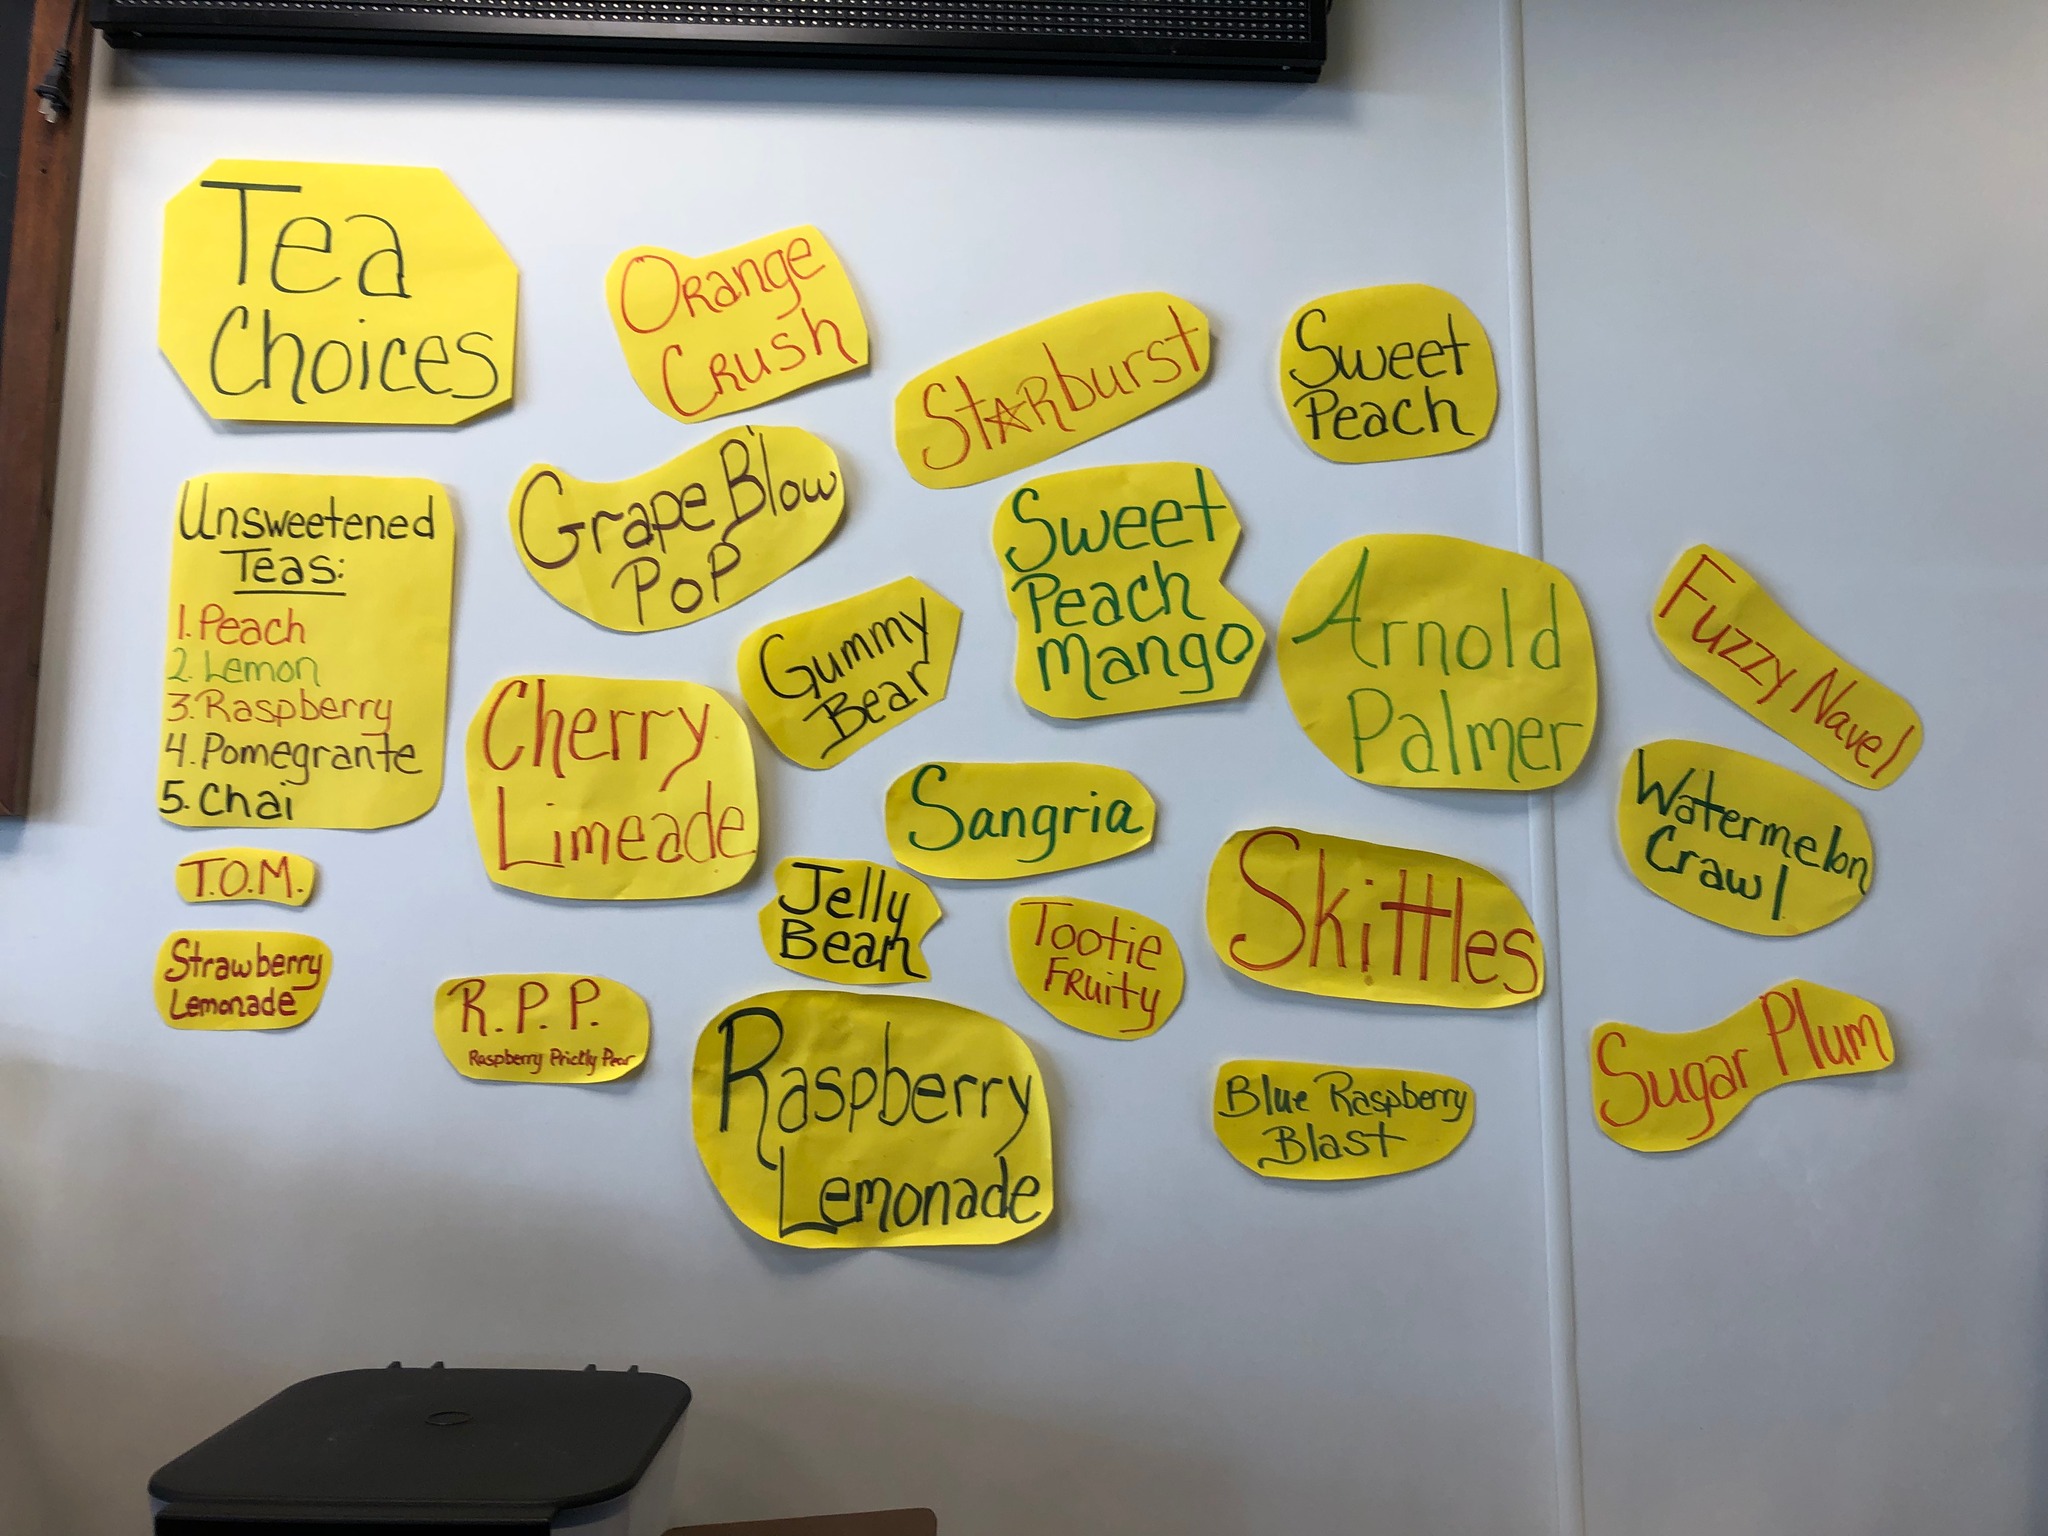 Tea
Choices
Unsweetened
Teas:
1. Peach
2. Lemon
3. Raspberry
4. Pomegrante
5. Chai
T.O.M.
Strawberry
Lemonade
Orange
Crush
Grape Blow
Pop
Cherry
Limeade
R.P.P.
Raspberry Prictly Pear
Starburst
Gummy
Bear
Sweet
Peach
Mango
Sangria
Jelly
Bean
Tootie
Fruity
Raspberry
Lemonade
Sweet
Peach
Arnold
Palmer
Skittles
Blue Raspberry
Blast
Fuzzy Navel
Watermelon
Crawl
Sugar Plum